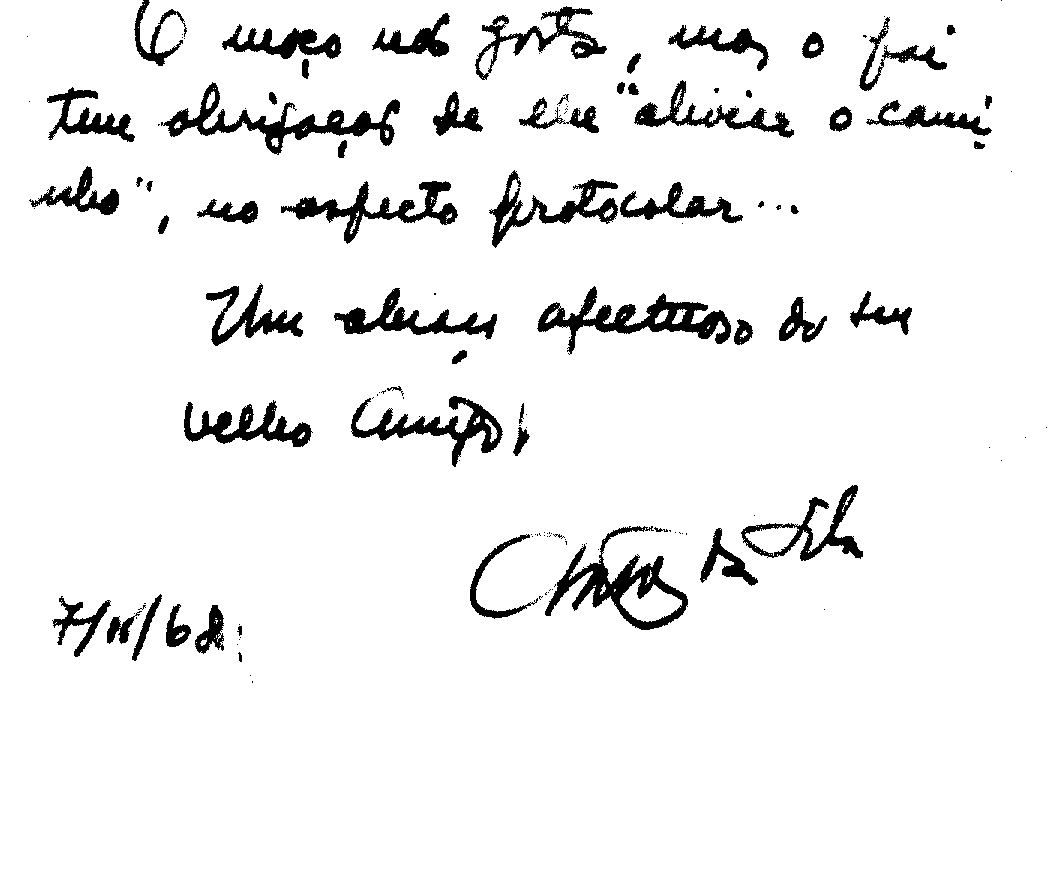 O moço não gosta, mas o pai
tem obrigação de lhe "aliviar o cami
nho", no aspecto protocolar...
Um abraço afectuoso do seu
velho amigo,
da Silva
7/11/68